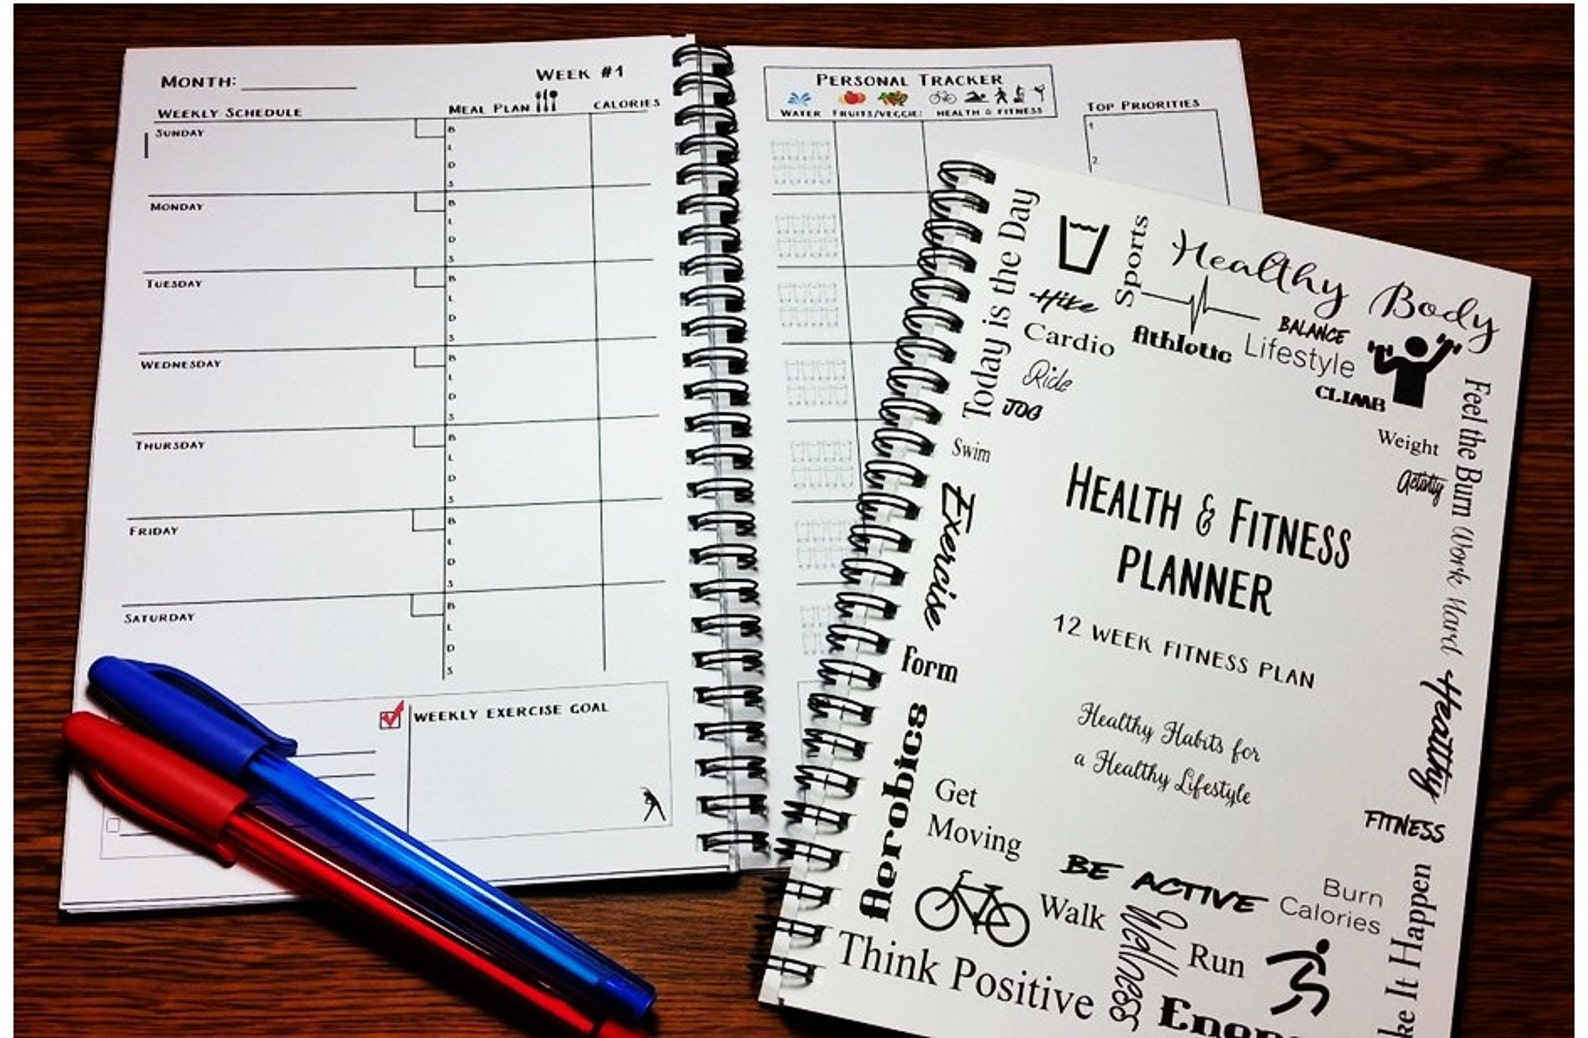 MONTH:
WEEK #1
WEEKLY SCHEDULE
MEAL PLAN
CALORIES
SUNDAY
B
L
D
S
MONDAY
B
L
D
S
TUESDAY
B
L
D
S
WEDNESDAY
B
L
D
S
THURSDAY
B
L
D
S
FRIDAY
B
L
D
S
SATURDAY
B
L
D
S
WEEKLY EXERCISE GOAL
PERSONAL TRACKER
WATER
FRUITS/VEGGIE
HEALTH & FITNESS
TOP PRIORITIES
1
2
Today is the Day
Sports
Healthy Body
Hike
Cardio
Athletic
BALANCE
Lifestyle
CLIMB
Ride
JOG
Swim
Weight
Activity
Feel the Burn
Exercise
HEALTH & FITNESS
PLANNER
12 WEEK FITNESS PLAN
Work Hard
Form
Healthy Habits for
a Healthy Lifestyle
Healthy
Aerobics
Get
Moving
FITNESS
BE ACTIVE
Burn
Calories
Walk
Wellness
Run
Think Positive
It Happen